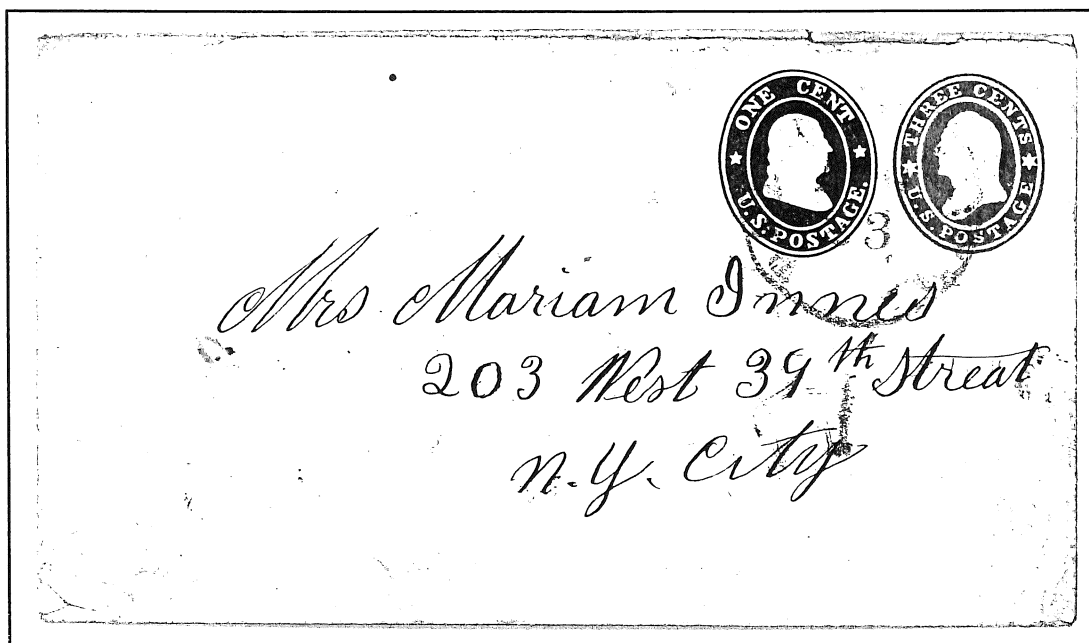 ONE CENT U.S. POSTAGE.
THREE CENTS U.S. POSTAGE
3
Mrs Mariam Innes
203 West 39th Streat
N. Y. City